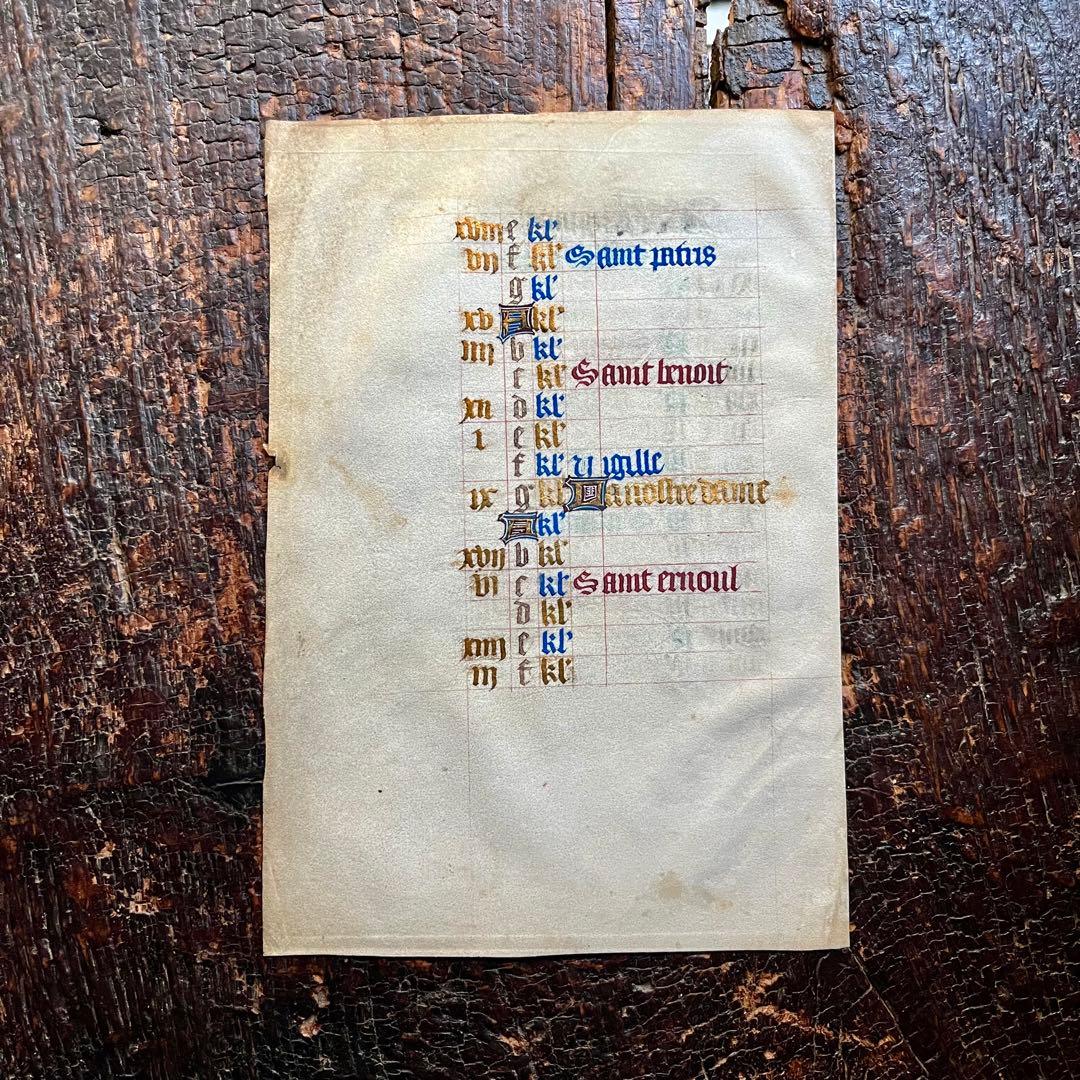 xviij e kl'
vij f kl' Saint patris
g kl'
xv A kl'
iiij b kl'
c kl' Saint benoit
xij d kl'
i e kl'
f kl' Vigille
ix g kl' Da nostre dame
A kl'
xvij b kl'
vi c kl' Saint ernoul
d kl'
xiiij e kl'
iij f kl'